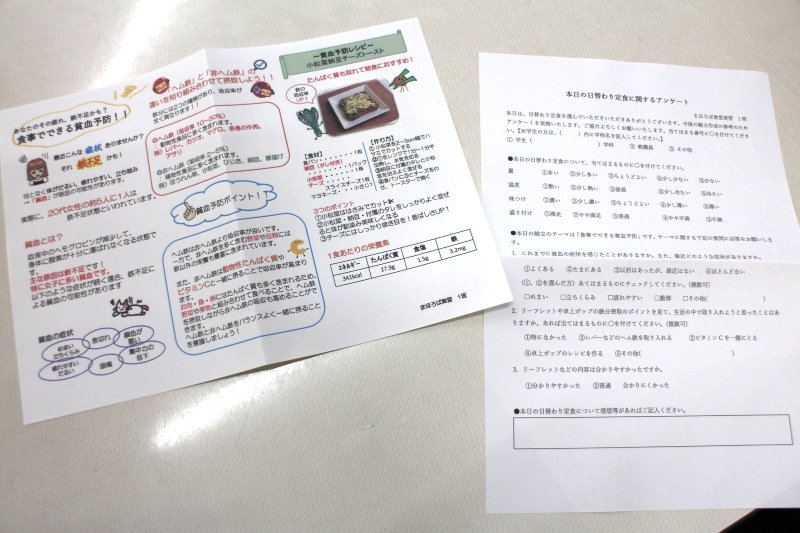 あなたのその疲れ、鉄不足かも？
食事でできる貧血予防！！
最近こんな症状ありませんか？
それ 鉄不足 かも！
何となく体がだるい、疲れやすい、立ち眩み
“貧血”が原因の可能性があります。
実際に、20代女性の約5人に1人が
鉄不足状態といわれています。
貧血とは？
血液中のヘモグロビンが減少して、
身体に酸素が十分に運ばれなくなる状態で
す。
主な原因は鉄不足です！
特に女子に多い貧血です。
以下のような症状が続く場合、鉄不足に
よる貧血の可能性があります
貧血の症状
めまい
立ちくらみ
息切れ
顔色が
悪い
疲れやすい
だるい
頭痛
集中力の
低下
「ヘム鉄」と「非ヘム鉄」の
違いを知り組み合わせて摂取しよう！！
鉄分には2つの種類があり、吸収率が
全く異なります！！
◎ヘム鉄（吸収率 10～30%）
動物性食品に多く含まれます。
例）レバー、カツオ、マグロ、豚・鶏の牛肉、
アサリ
◎非ヘム鉄（吸収率 2～5%）
植物性食品に多く含まれます。
例）ほうれん草、小松菜、ひじき、納豆、厚揚げ
貧血予防ポイント！
ヘム鉄は非ヘム鉄より吸収率が良いです。
一方で、非ヘム鉄を多く含む野菜や豆類には
鉄以外の栄養も豊富に含まれています。
また、非ヘム鉄は動物性たんぱく質や
ビタミンCと一緒に摂ることで吸収率が高まり
ます。
お肉・魚・卵にはたんぱく質も多く含まれるため、
野菜や果物と組み合わせて食べることで、ヘム鉄
を摂取しながら非ヘム鉄の吸収も高めることができ
ます。
ヘム鉄と非ヘム鉄をバランスよく一緒に摂ること
を意識しましょう！
～貧血予防レシピ～
小松菜納豆チーズトースト
たんぱく質も取れて朝食におすすめ！
鉄の
吸収率
UP！
【食材】
食パン・・・・・・1枚
納豆（少し付き）・・1パック
小松菜・・・・・・1株
チーズ スライスチーズ1枚
マヨネーズ・・・小さじ1
【作り方】
3つのポイント
①小松菜はハサミでカット
②小松菜・納豆・付属のタレをしっかりよく混ぜ
ると味が馴染み美味しくなる
③チーズにはしっかり焼き目を！香ばしさUP！
1食あたりの栄養素
エネルギー たんぱく質 食塩 鉄
341kcal 17.9g 1.5g 3.2mg
まほろば実習 1班
本日の日替わり定食に関するアンケート
まほろば食堂実習 1班
本日は、日替わり定食を選んでいただきいただきありがとうございます。今後の献立作成の参考のため、
アンケートを実施いたします。ご協力よろしくお願いいたします。当てはまる番号に○を付けてください。
【※学生の方は、（ ）内に学科名を記入してください。】
① 学生（ ）学科 ② 教職員 ③ その他
●本日の日替わり定食について、当てはまるものに○を付けてください。
量 ①多い ②少し多い ③ちょうどよい ④少し少ない ⑤少ない
温度 ①熱い ②少し熱い ③普通 ④少し冷たい ⑤冷たい
味つけ ①濃い ②少し濃い ③ちょうどよい ④少し薄い ⑤薄い
盛り付け ①満足 ②やや満足 ③普通 ④やや不満 ⑤不満
●本日の献立のテーマは「食事でできる貧血予防」です。テーマに関する下記の質問に回答をお願いしま
す。
1. これまでに貧血の症状を感じたことがありますか。また、最近どのような症状がありましたか。
①よくある ②たまにある ③以前はあったが、最近はない ④ほとんどない
（①、②、③を選んだ方）あてはまるにチェックしてください。（複数可）
□めまい □立ちくらみ □疲れやすい □動悸 □その他( )
2. リーフレットや卓上ポップの鉄分摂取のポイントを見て、生活の中で取り入れようと思ったことはあ
りますか。あれば当てはまるものに○を付けてください。（複数可）
①特になかった ②レバーなどのヘム鉄を取り入れる ③ビタミンCを一緒にとる
④卓上ポップのレシピを作る ⑤その他( )
3. リーフレットなどの内容は分かりやすかったですか。
①分かりやすかった ②普通 分かりにくかった
●本日の日替わり定食について感想等があればご記入ください。